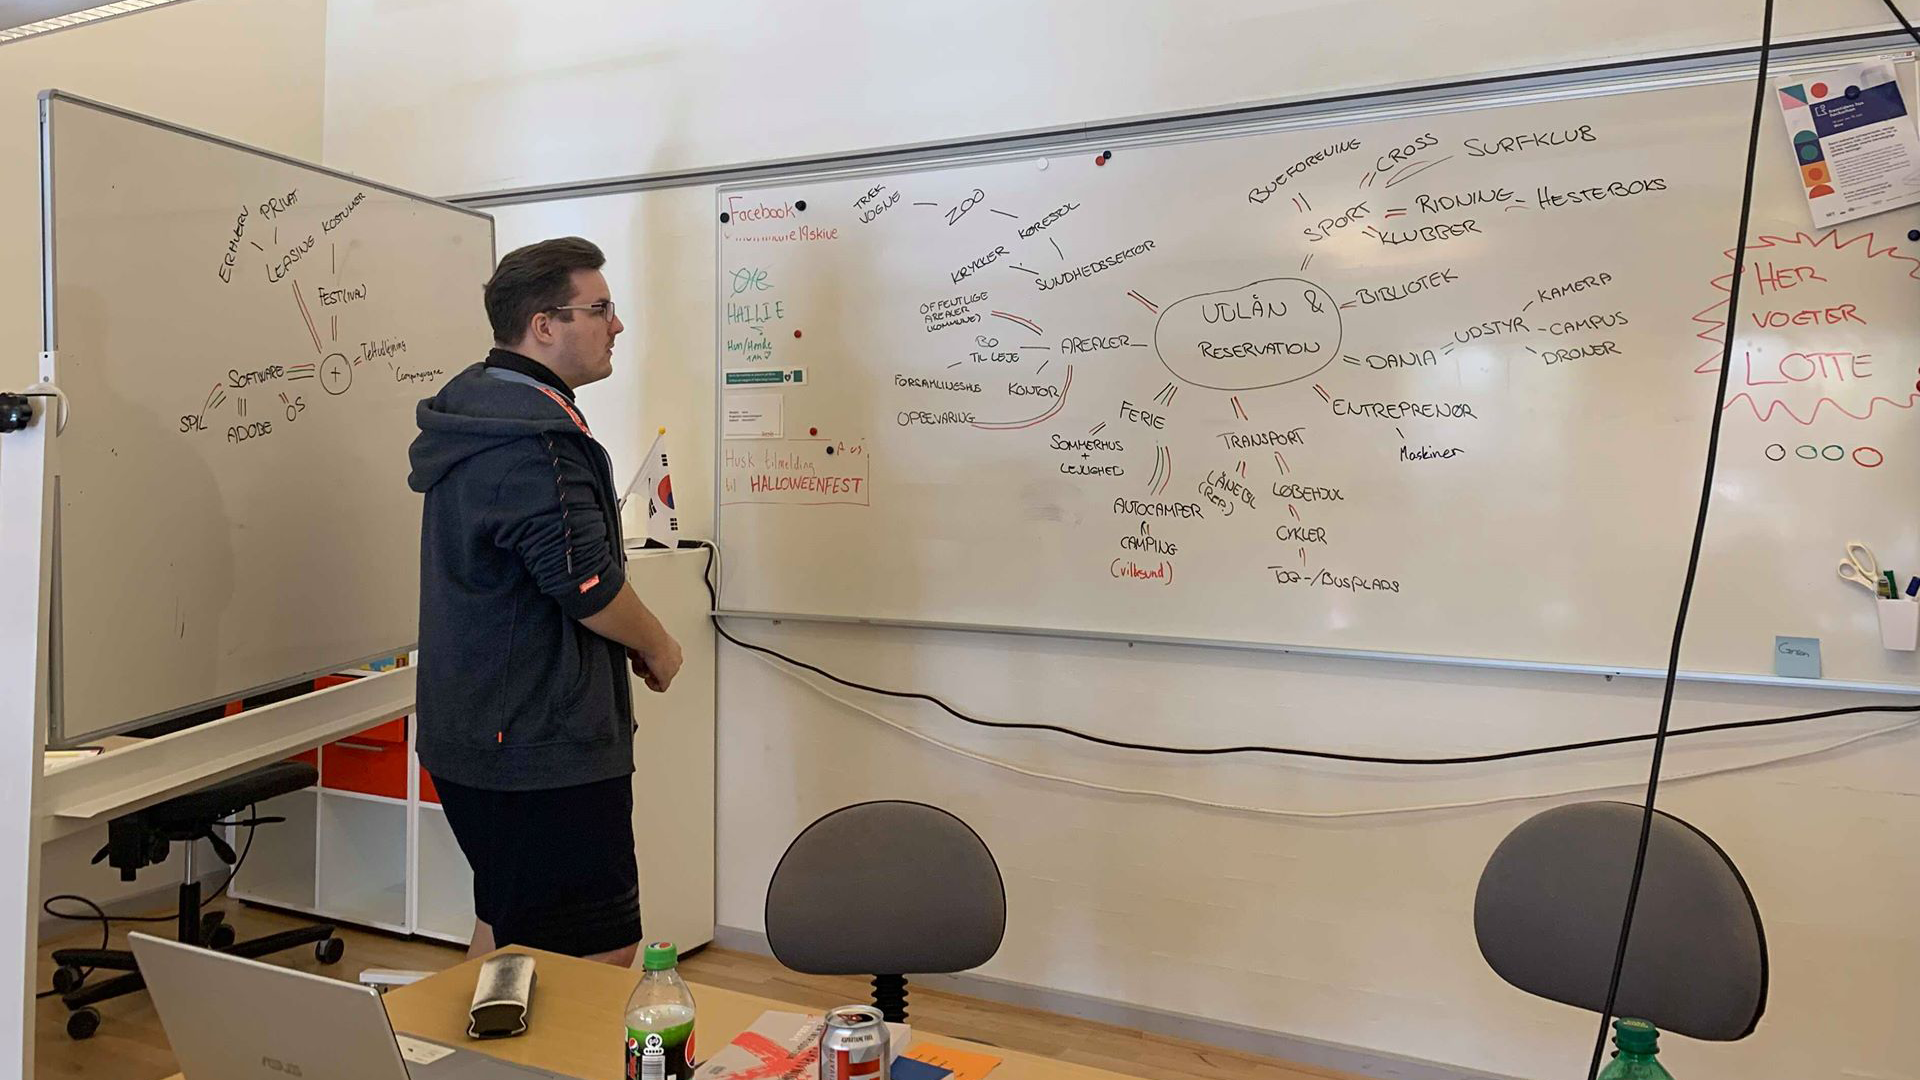 ERHVERV
PRIVAT
LEASING
KOSTUMER
FEST(IVAL)
+
Teltudlejning
Campingvogne
SOFTWARE
SPIL
ADOBE
OS
Facebook
HAILIE
Hun/Hende
Husk tilmelding
til HALLOWEENFEST
TRÆK
VOGNE
ZOO
KØRESTOL
KRYKKER
SUNDHEDSSEKTOR
OFFENTLIGE
AREALER
(KOMMUNE)
BO
TIL LEJE
AREALER
FORSAMLINGSHUS
KONTOR
OPBEVARING
UDLÅN &
RESERVATION
BUEFORENING
CROSS
SURFKLUB
SPORT
RIDNING
HESTEBOKS
KLUBBER
BIBLIOTEK
DANIA
UDSTYR
KAMERA
CAMPUS
DRONER
ENTREPRENØR
Maskiner
FERIE
SOMMERHUS
+
LEJLIGHED
AUTOCAMPER
CAMPING
(vilsund)
TRANSPORT
LÅNEBIL
(REP.)
LØBEHJUL
CYKLER
TOG-/BUSPLADS
HER
VOGTER
LOTTE
ASUS